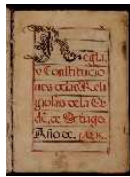 Regla,
y Constitucio
nes de las Reli
giosas de la Or
dē, de Sctiago.
Año de